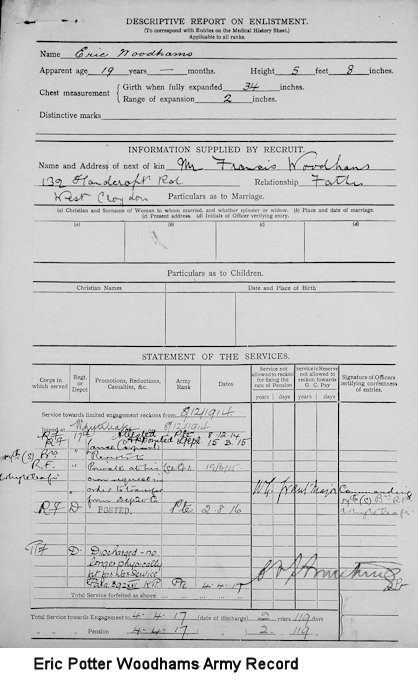 DESCRIPTIVE REPORT ON ENLISTMENT.
(To correspond with Entries on the Medical History Sheet.)
Applicable to all ranks.
Name Eric Woodhams
Apparent age 19 years — months. Height 5 feet 8 inches.
Chest measurement { Girth when fully expanded 34 inches.
Range of expansion 2 inches.
Distinctive marks
INFORMATION SUPPLIED BY RECRUIT.
Name and Address of next of kin Mr Francis Woodhams
139 Handcroft Rd Relationship Father
West Croydon Particulars as to Marriage.
(a) Christian and Surname of Woman to whom married, and whether spinster or widow. (b) Place and date of marriage.
(c) Present address. (d) Initials of Officer verifying entry.
(a) (b) (c) (d)
Particulars as to Children.
Christian Names Date and Place of Birth
STATEMENT OF THE SERVICES.
Corps in which served Regt. or Depot Promotions, Reductions, Casualties, &c. Army Rank Dates Service not allowed to reckon for fixing the rate of Pension Service in Reserve not allowed to reckon towards G. C. Pay Signature of Officers certifying correctness of entries.
years days years days
Service towards limited engagement reckons from 8/12/1914
Joined at 8/12/1914
R.F. 17th Attested Pte 8.12.14
R.F. " Appointed 15.3.15
Lance Corporal
R.F. " Private at his 19/6/15
own request in
order to transfer
R.F. D POSTED. Pte 2-8-16
D Discharged - no
longer physically
fit for War Service
Para 392 XVI KR Pte 4-4-17
Total Service forfeited as above
Total Service towards Engagement to 4-4-17 (date of discharge) 2 years 119
" " Pension 4-4-17 " 2 " 119
Eric Potter Woodhams Army Record